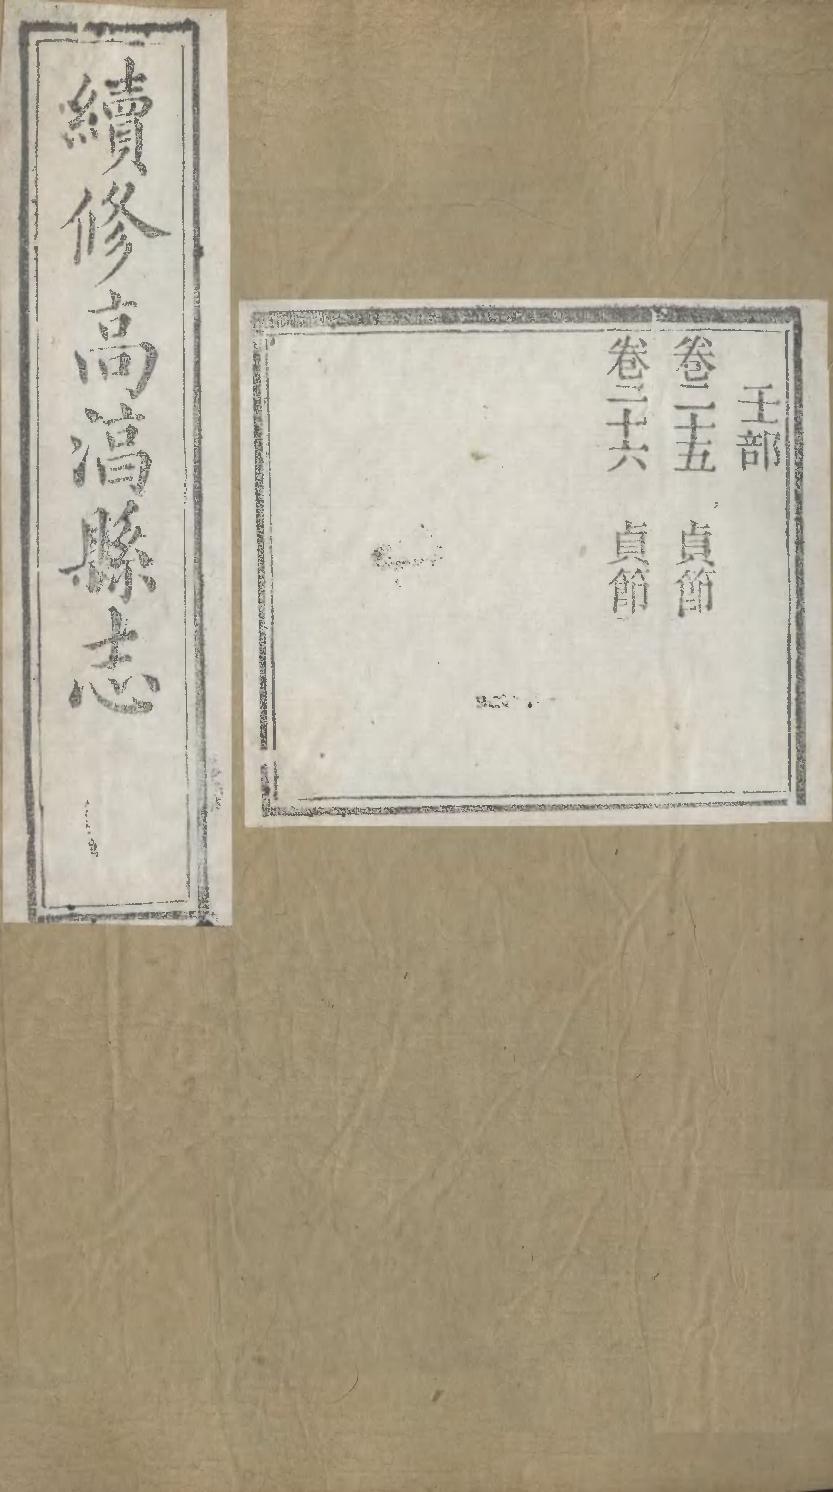 壬部
卷二十五 貞節
卷二十六 貞節
續修高湻縣志